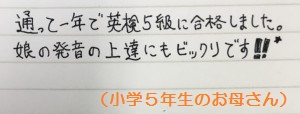 通って一年で英検５級に合格しました。
娘の発音の上達にもビックリです!!
（小学５年生のお母さん）